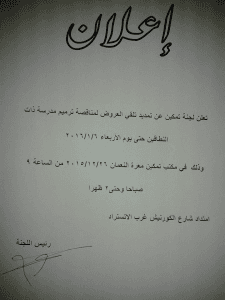 إعلان
تعلن لجنة تمكين عن تمديد تلقي العروض لمناقصة ترميم مدرسة ذات
النطاقين حتى يوم الاربعاء ٢٠١٦/١/٦
وذلك في مكتب تمكين معرة النعمان ٢٠١٥/١٢/٢٦ من الساعة ٩
صباحا وحتى٢ ظهرا
امتداد شارع الكورنيش غرب الانستراد
رئيس اللجنة